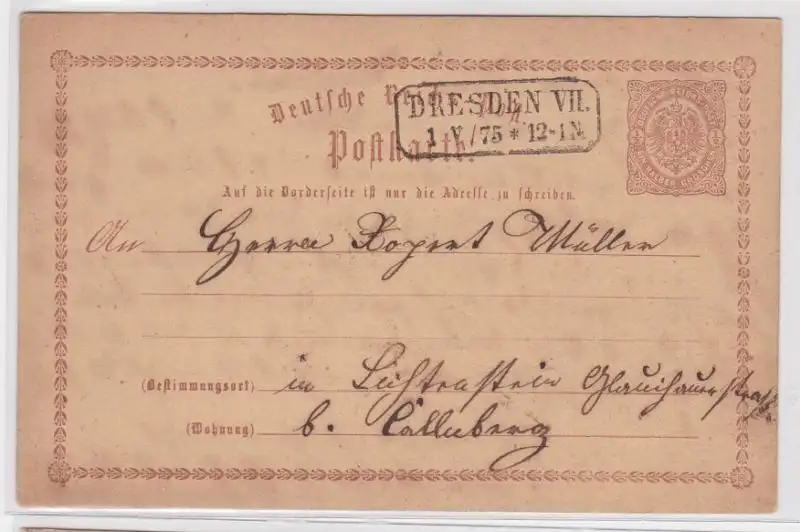 Deutsche Reichs-Post
DRESDEN VII.
1 V /75 * 12-1 N
Postkarte.
Auf die Vorderseite ist nur die Adresse zu schreiben.
An Herrn Müller
(Bestimmungsort) in Lichtenstein Glauchauerstraße
(Wohnung) b. Callnberg